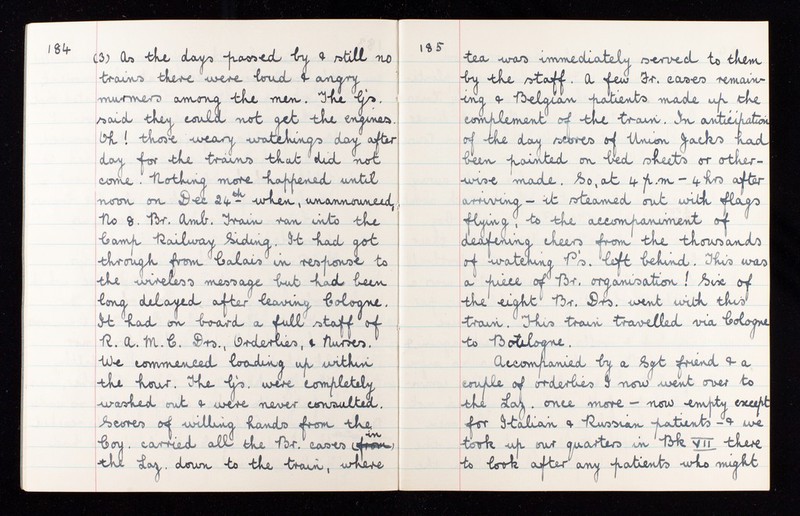 184
(3) As the days passed by & still no
trains there were loud & angry
murmers among the men. The Gs.
said they could not get the engines.
Oh! those weary watchings day after
day for the trains that did not
come. Nothing more happened until
noon on Dec 24th when, unannounced,
No 8. Br. Amb. Train ran into the
Camp Railway Siding. It had got
through from Calais in response to
the wireless message but had been
long delayed after leaving Cologne.
It had on board a full staff of
R.A.M.C. Drs., Orderlies, & Nurses.
We commenced loading up within
the hour. The Gs. were completely
washed out & were never consulted.
Scores of willing hands from the
Coy. carried all the Br. cases (from) in
the Laz. down to the train, where
185
tea was immediately served to them
by the staff. A few Fr. cases remain-
ing & Belgian patients made up the
complement of the train. In anticipation
of the day scores of Union Jacks had
been painted on bed sheets or other-
wise made. So, at 4 p.m – 4 hrs after
arriving – it steamed out with flags
flying, to the accompaniment of
deafening cheers from the thousands
of watching P's. left behind. This was
a piece of Br. organisation! Six of
the eight Br. Drs. went with this
train. This train travelled via Cologne
to Boulogne.
Accompanied by a Sgt friend & a
couple of orderlies I now went over to
the Laz. once more – now empty except
for Italian & Russian patients – & we
took up our quarters in Bk VII there
to look after any patients who might